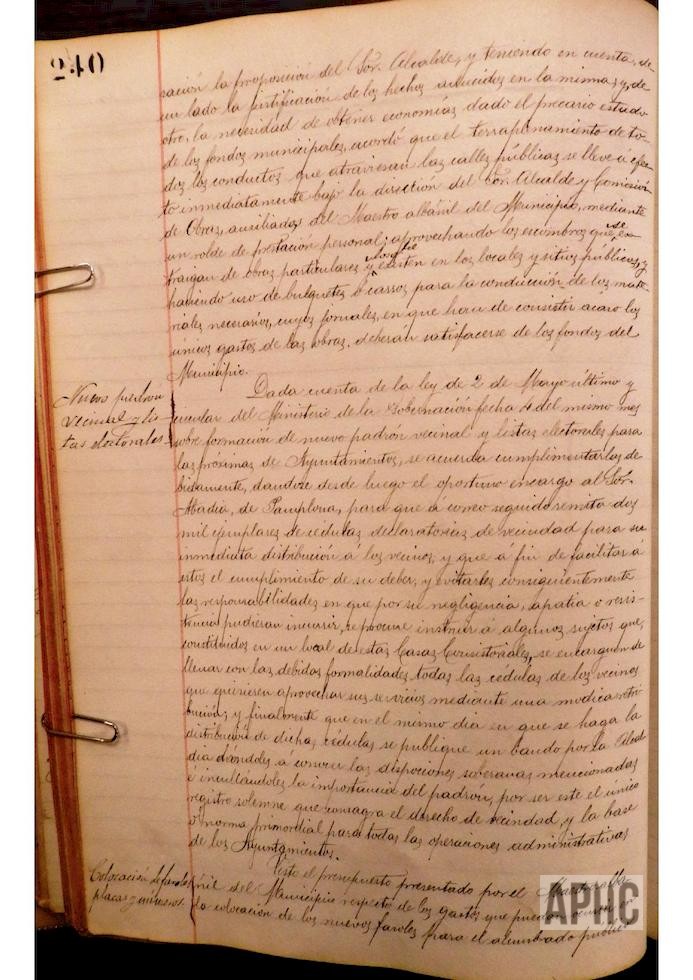 240
sación la proposición del Sor. Alcalde, y teniendo en cuenta, de
un lado la justificación de los hechos aducidos en la misma, y, de
otro, la necesidad de obtener economías dado el precario estado
de los fondos municipales, acordó que el terraplenamiento de to-
dos los conductos que atraviesan las calles públicas se lleve á efec-
to inmediatamente bajo la dirección del Sor. Alcalde y Comisión
de Obras, auxiliados del Maestro albánil del Municipio, mediante
un rolde de prestación personal; aprovechando los escombros que se ex-
traigan de obras particulares y existen en los locales y sitios públicos, y
haciendo uso de bulquetes ó carros para la conducción de los mate-
riales necesarios, cuyos jornales, en que han de consistir acaso los
únicos gastos de las obras, deberán satisfacerse de los fondos del
Municipio.
Nuevo padrón
vecinal y lis-
tas electorales
Dada cuenta de la ley de 2 de Mayo último y
circular del Ministerio de la Gobernación fecha 4 del mismo mes
sobre formación de nuevo padrón vecinal y listas electorales para
las próximas de Ayuntamientos, se acuerda cumplimentarlas de-
bidamente, dandose desde luego el oportuno encargo al Sor.
Abadía, de Pamplona, para que á correo seguido remita dos
mil ejemplares de cédulas declaratorias de vecindad para su
inmediata distribución á los vecinos, y que á fin de facilitar á
estos el cumplimiento de su deber, y evitarles consiguientemente
las responsabilidades en que por su negligencia, apatía o resis-
tencia pudieran incurrir, se procure instruir á algunos sujetos que,
constituidos en un local de estas Casas Consistoriales, se encarguen de
llenar con las debidas formalidades todas las cédulas de los vecinos
que quisieren aprovechar sus servicios mediante una modica retri-
bución; y finalmente que en el mismo dia en que se haga la
distribución de dichas cédulas se publique un bando por la Alcal-
dia dándoles á conocer las disposiones soberanas mencionadas
é inculcándoles la importancia del padrón, por ser este el único
registro solemne que consagra el derecho de vecindad, y la base
ó norma primordial para todas las operaciones administrativas
de los Ayuntamientos.
Colocación de faroles
placas y números.
Visto el presupuesto presentado por el Maestro albá-
ñil del Municipio respecto de los gastos que puedan ocurrir en
la colocación de los nuevos faroles para el alumbrado público
APHC